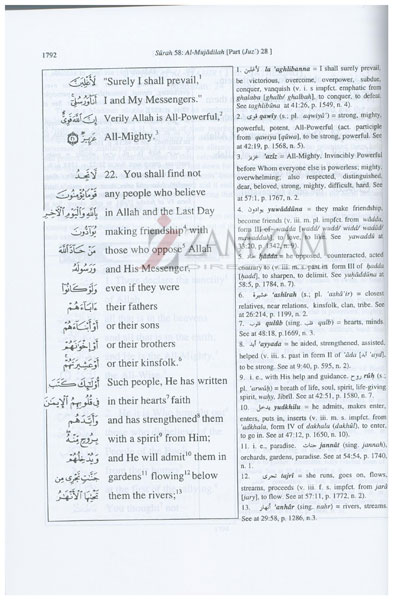 1792
Sûrah 58: Al-Mujâdilah [Part (Juz') 28 ]
لَأَغْلِبَنَّ "Surely I shall prevail,1
أَنَا۠ وَرُسُلِىٓ I and My Messengers."
إِنَّ ٱللَّهَ قَوِىٌّ Verily Allah is All-Powerful,2
عَزِيزٌ All-Mighty.3
لَّا تَجِدُ 22. You shall find not
قَوْمًا يُؤْمِنُونَ any people who believe
بِٱللَّهِ وَٱلْيَوْمِ ٱلْءَاخِرِ in Allah and the Last Day
يُوَآدُّونَ making friendship4 with
مَنْ حَآدَّ ٱللَّهَ those who oppose5 Allah
وَرَسُولَهُۥ and His Messenger,
وَلَوْ كَانُوٓا۟ even if they were
ءَابَآءَهُمْ their fathers
أَوْ أَبْنَآءَهُمْ or their sons
أَوْ إِخْوَٰنَهُمْ or their brothers
أَوْ عَشِيرَتَهُمْ or their kinsfolk.6
أُو۟لَٰٓئِكَ كَتَبَ Such people, He has written
فِى قُلُوبِهِمُ ٱلْإِيمَٰنَ in their hearts7 faith
وَأَيَّدَهُم and has strengthened8 them
بِرُوحٍ مِّنْهُ with a spirit9 from Him;
وَيُدْخِلُهُمْ and He will admit10 them in
جَنَّٰتٍ تَجْرِى مِن gardens11 flowing12 below
تَحْتِهَا ٱلْأَنْهَٰرُ them the rivers;13
1. لأغلبن la 'aghlibanna = I shall surely prevail,
be victorious, overcome, overpower, subdue,
conquer, vanquish (v. i. s impfct. emphatic from
ghalaba [ghalb/ ghalbah], to conquer, to defeat.
See taghlibûna at 41:26, p. 1549, n. 4).
2. قوى qawiy (s. pl. aqwiyâ') = strong, mighty,
powerful, potent, All-Powerful (act. participle
from qawiya [qûwa], to be strong, powerful. See
at 42:19, p. 1568, n. 5).
3. عزيز 'azîz = All-Mighty, Invincibly Powerful
before Whom everyone else is powerless; mighty,
overwhelming; also respected, distinguished,
dear, beloved, strong, mighty, difficult, hard. See
at 57:1, p. 1767, n. 2.
4. يوادون yuwâddûna = they make friendship,
become friends (v. iii. m. pl. impfct. from wâdda,
form III of wadda [wadd/ wudd/ widd/ wadâd/
love, to like. See yawaddu at
35:20, p. 1342, n. 9).
5. حاد hâdda = he opposed, counteracted, acted
contrary to (v. iii. m. s. past in form III of hadda
[hadd], to sharpen, to delimit. See yuhâddûna at
58:5, p. 1784, n. 7).
6. عشيرة 'ashîrah (s.; pl. 'ashâ'ir) = closest
relatives, near relations, kinsfolk, clan, tribe. See
at 26:214, p. 1199, n. 2.
7. قلوب qulûb (sing. قلب qalb) = hearts, minds.
See at 48:18, p. 1669, n. 3.
8. أيد 'ayyada = he aided, strengthened, assisted,
helped (v. iii. s. past in form II of 'âda [ 'ayd],
to be strong. See at 9:40, p. 595, n. 2).
9. i. e., with His help and guidance. روح rûh (s.
pl. 'arwâh) = breath of life, soul, spirit, life-giving
spirit, wahy, Jibrîl. See at 42:51, p. 1580, n. 7.
10. يدخل yudkhilu = he admits, makes enter,
enters, puts in, inserts (v. iii. m. s. impfct. from
'adkhala, form IV of dakhala (dukhûl), to enter,
to go in. See at 47:12, p. 1650, n. 10).
11. i. e., paradise. جنات jannât (sing. jannah),
orchards, gardens, paradise. See at 54:54, p. 1740,
n. 1.
12. تجرى tajrî = she runs, goes on, flows,
streams, proceeds (v. iii. f. s. impfct. from jarâ
[jary], to flow. See at 57:11, p. 1772, n. 2).
13. أنهار 'anhâr (sing. nahr) = rivers, streams.
See at 29:58, p. 1286, n. 3.
ZAMZAM
DIRECT